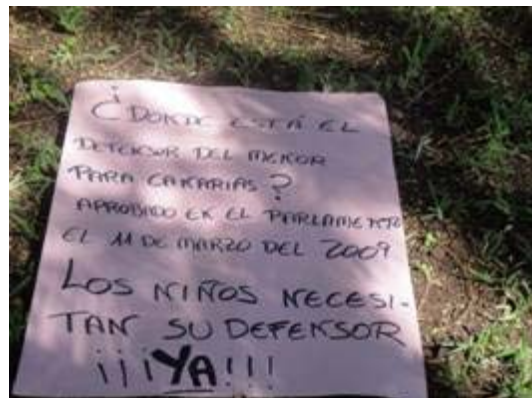 ¿DONDE ESTÁ EL
DEFENSOR DEL MENOR
PARA CANARIAS?
APROBADO EN EL PARLAMENTO
EL 11 DE MARZO DEL 2009
LOS NIÑOS NECESI-
TAN SU DEFENSOR
¡¡¡YA!!!